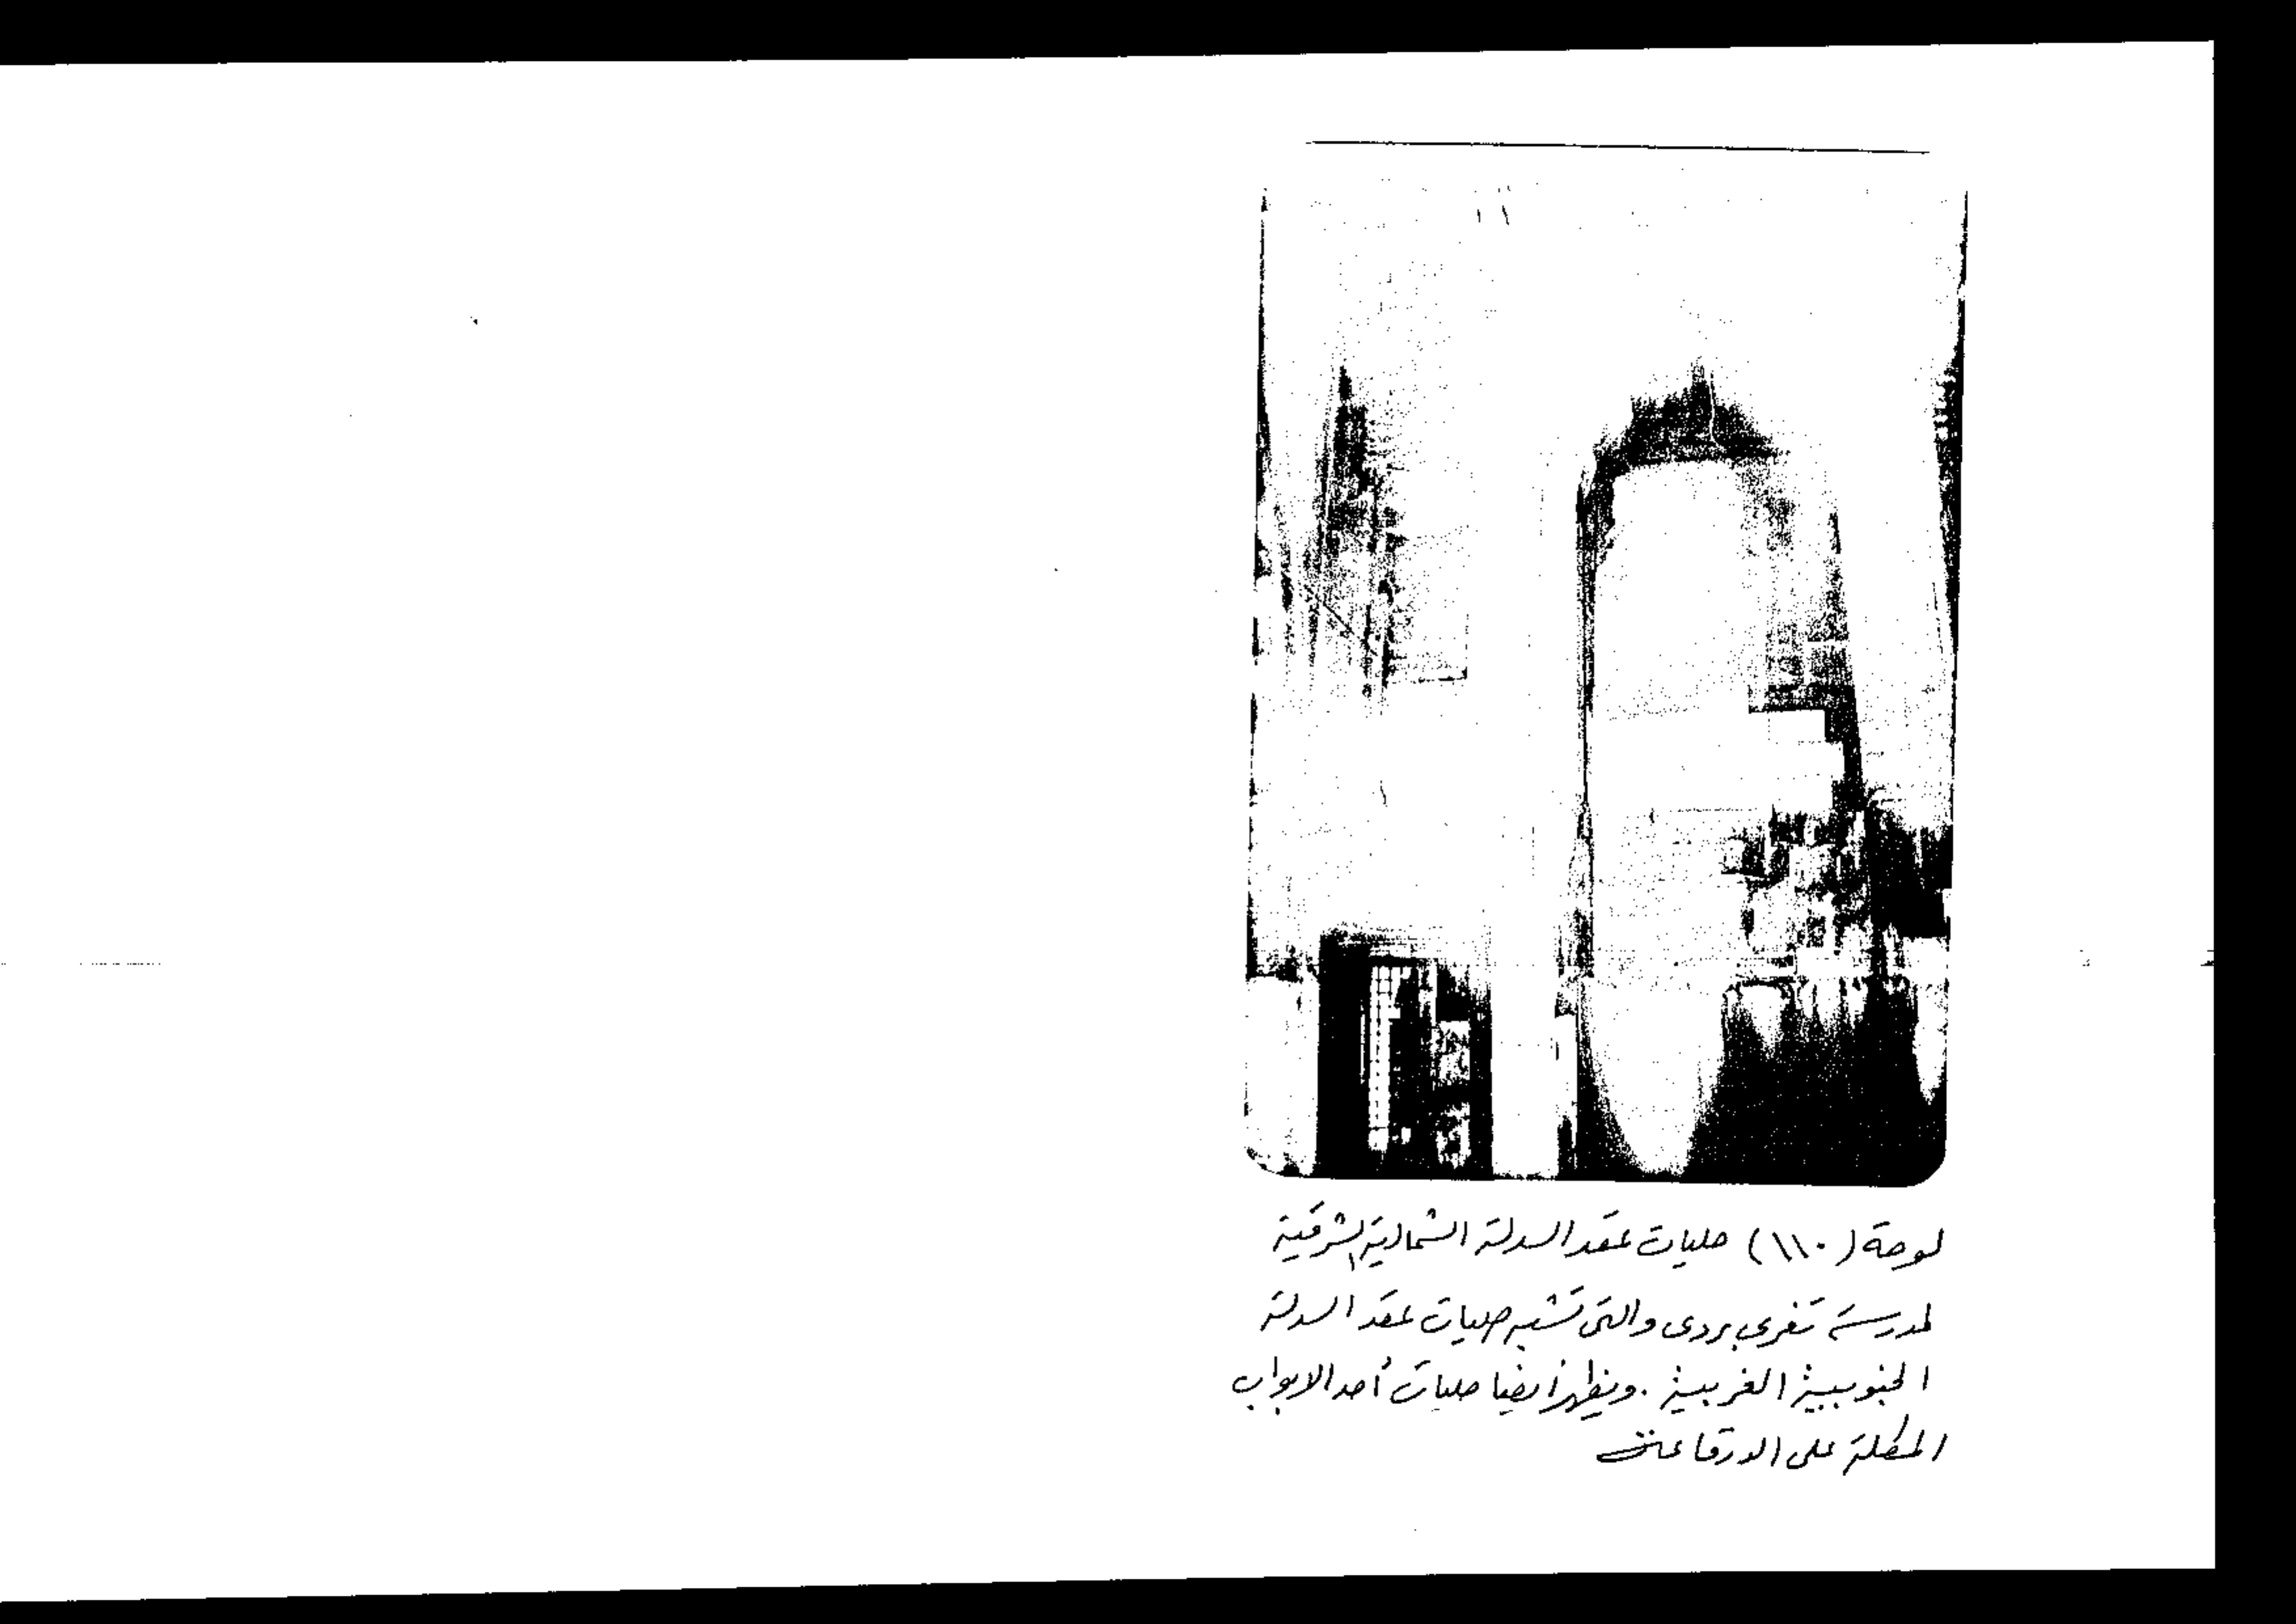 لوحة (١١٠) حليات عقد السدلة الشمالية الشرقية
لمدرسة تغرى بردى والتى تشبه حليات عقد السدلة
الجنوبية الغربية . ويظهر أيضا حليات أحد الابواب
المطلة على الدرقاعة